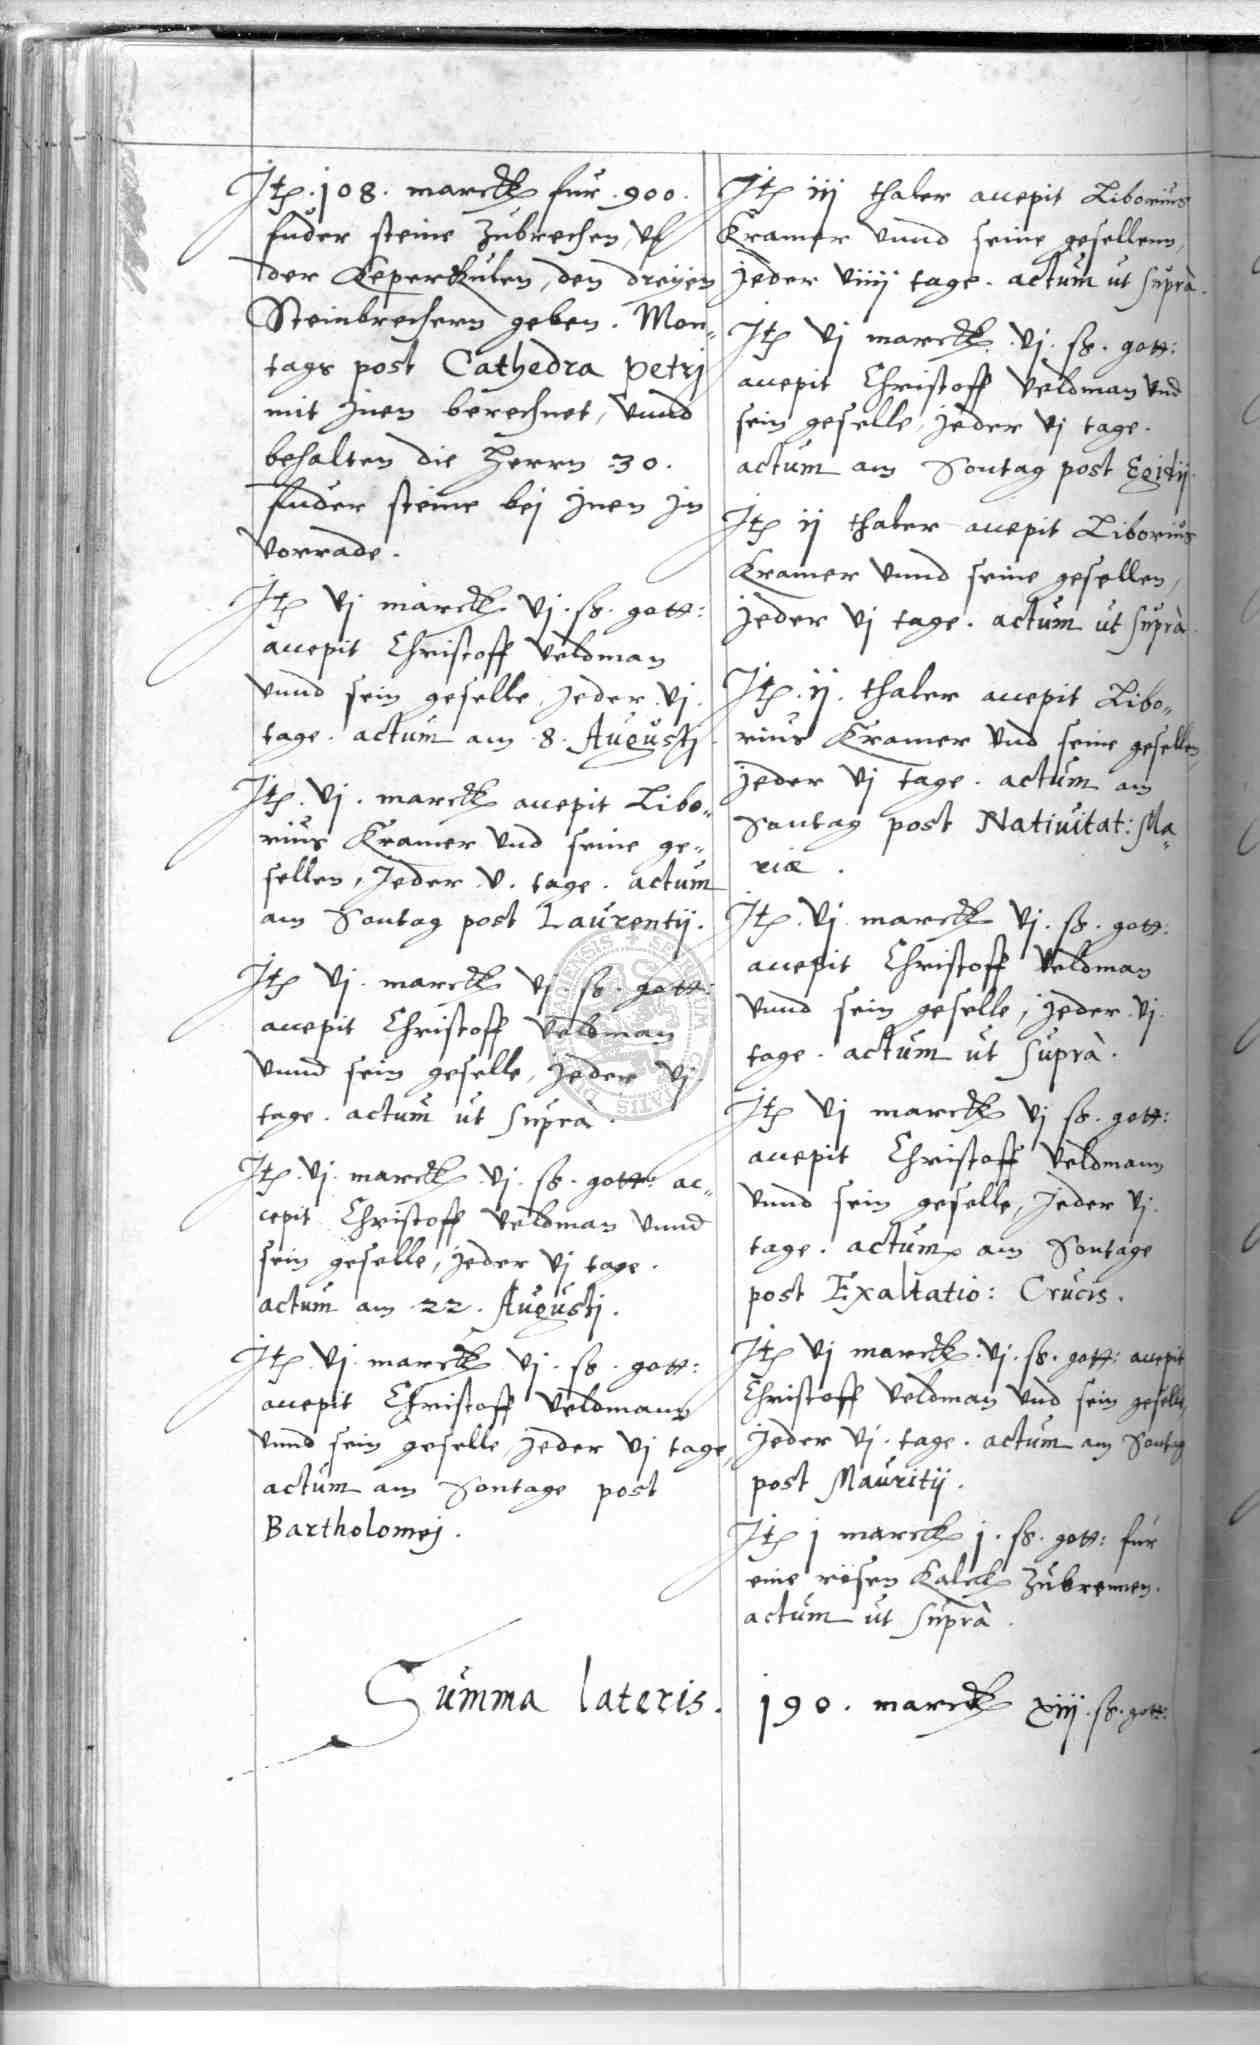 Jtem .108. marck fur .900.
fuder steine zubrechen, uf
der Keperkulen, den dreyen
Steinbrechern geben. Mon„
tags post Cathedra Petri
mit jnen berechnet, vnnd
behalten die herrn 30.
fuder steine bej jnen jn
vorrade.
Jtem vj marck vj. ß. gott:
accepit Christoff Veldman
vnnd sein geselle, jeder vj.
tage. actum am 8. Augustj
Jtem vj. marck accepit Libo„
rius Kramer vnd seine ge„
sellen, Jeder v. tage. actum
am Sontag post Laurentij.
Jtem vj. marck vj. ß. gott:
accepit Christoff Veldman
vnnd sein geselle, jeder vj
tage. actum ut suprà.
Jtem vj. marck vj. ß. gott: ac„
cepit Christoff Veldman vnnd
sein geselle, jeder vj tage.
actum am 22. Augustj.
Jtem vj. marck vj. ß. gott:
accepit Christoff Veldmann
vnnd sein geselle, jeder vj tage,
actum am Sontage post
Bartholomej.
Jtem iij thaler accepit Liborius
Kramer vnnd seine gesellenn,
jeder viiij tage. actum ut suprà.
Jtem vj marck vj. ß. gott:
accepit Christoff Veldman vnd
sein geselle, jeder vj tage.
actum am Sontag post Egidij.
Jtem ij thaler accepit Liborius
Kramer vnnd seine gesellen,
jeder vj tage. actum ut suprà.
Jtem .ij. thaler accepit Libo„
rius Kramer vnd seine gesellen,
jeder vj tage. actum am
Sontag post Natiuitat: Ma„
riæ.
Jtem vj. marck vj. ß. gott:
accepit Christoff Veldman
vnnd sein geselle, jeder vj.
tage. actum ut suprà.
Jtem vj marck vj ß. gott:
accepit Christoff Veldmann
vnnd sein geselle, Jeder vj.
tage. actum am Sontage
post Exaltatio: Crucis.
Jtem vj marck vj. ß. gott: accepit
Christoff Veldman vnd sein geselle,
jeder vj. tage. actum am Sontag
post Mauritij.
Jtem j marck j. ß. gott: für
eine rösen Kalck zubrennen.
actum ut suprà.
Summa lateris. 190. marck xiij. ß. gott: